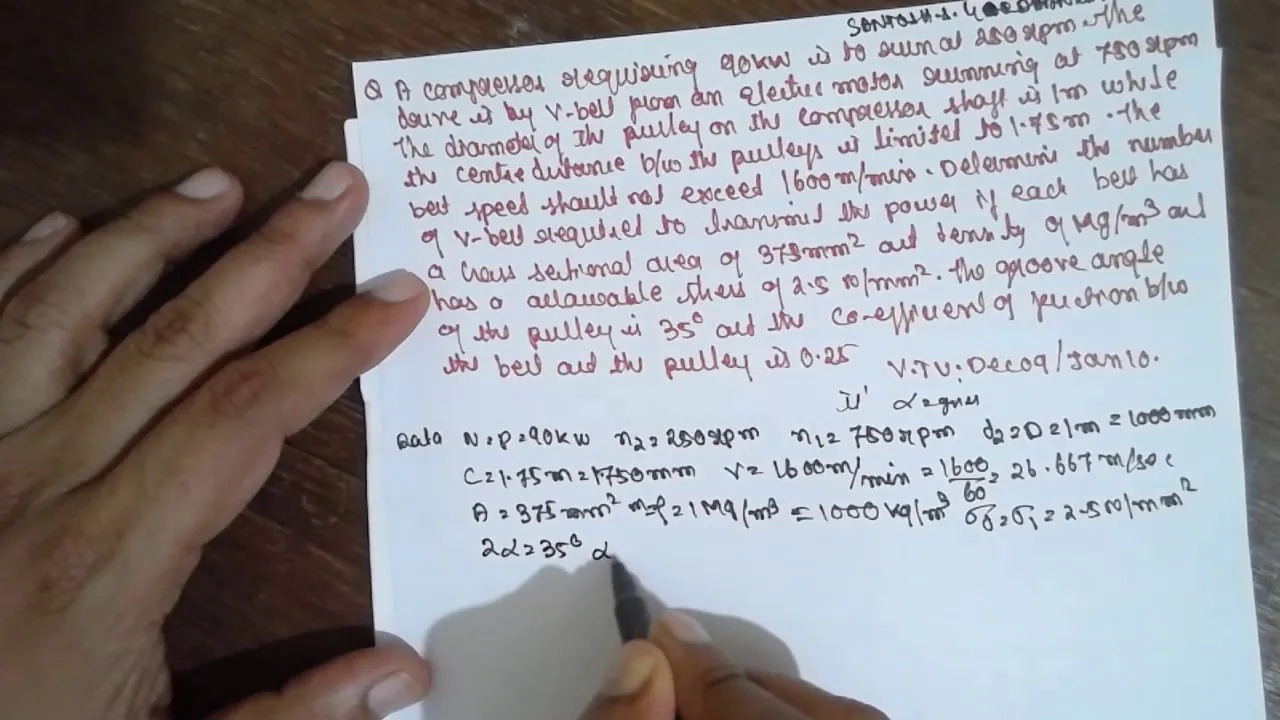 SANTOSH.S.
Q A compressor requiring 90KW is to run at 250 rpm. The
drive is by V-belt from an electric motor running at 750 rpm
The diameter of the pulley on the compressor shaft is 1m while
the centre distance b/w the pulleys is limited to 1.75m. The
belt speed should not exceed 1600m/min. Determine the number
of V-belt required to transmit the power if each belt has
a cross sectional area of 375mm² and density of 1Mg/m³ and
has a allowable stress of 2.5 N/mm². The groove angle
of the pulley is 35° and the co-efficient of friction b/w
the belt and the pulley is 0.25 V.T.U: Dec09/Jan10.
Data N=P=90KW n₂=250rpm n₁=750rpm d₂=D=1m=1000mm
C=1.75m=1750mm V=1600m/min=1600/60=26.667m/sec
A=375mm² ρ=1Mg/m³=1000kg/m³ σ₁=2.5N/mm²
2α=35° α